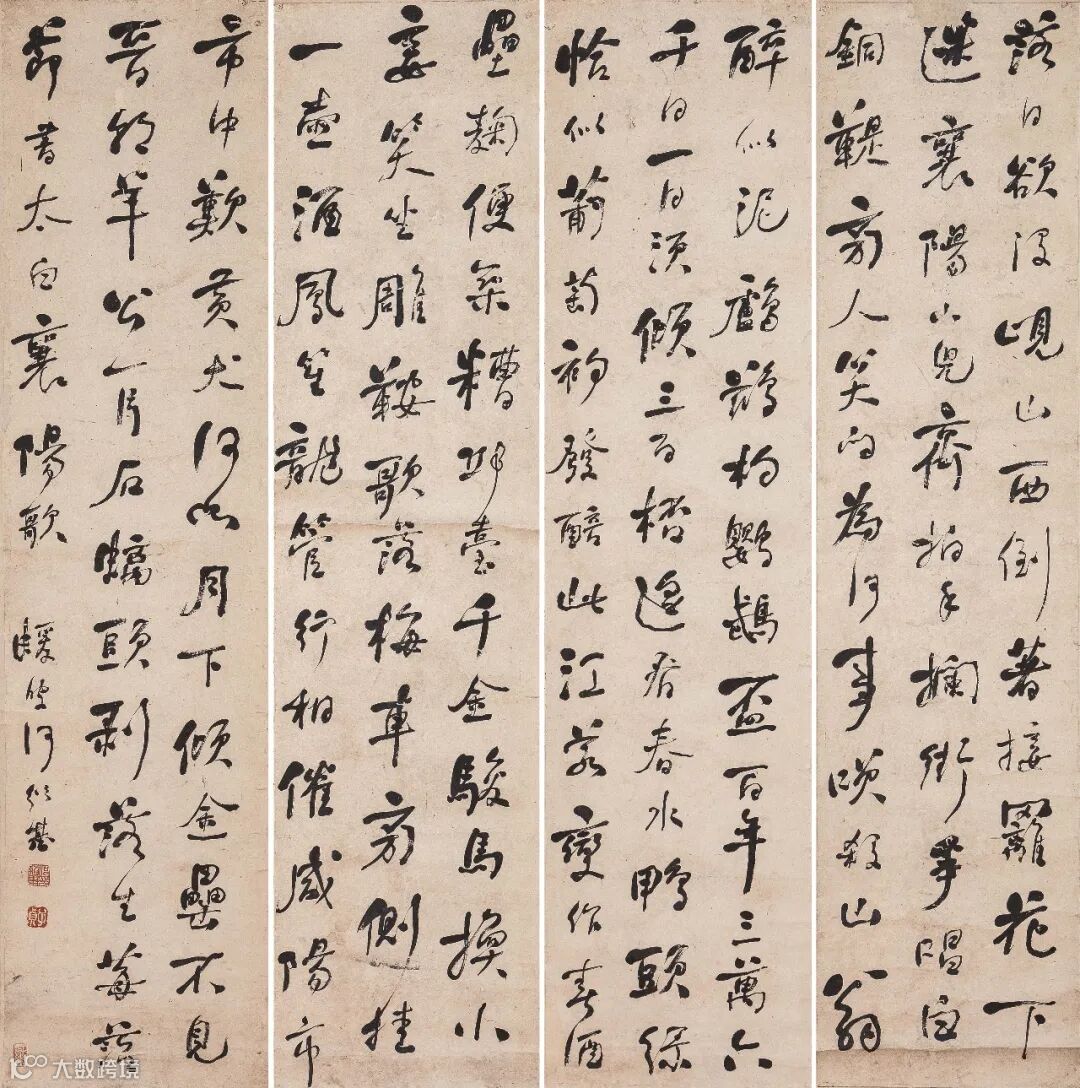 落日欲没峴山西倒著接䍦花下
迷襄陽小兒齊拍手攔街爭唱白
銅鞮旁人笑問為何事咲殺山翁
醉似泥鸕鷀杓鸚鵡盃百年三萬六
千日一日須傾三百桮遙看春水鴨頭綠
恰似葡萄初發醅此江若變作春酒
壘麴便築糟邱臺千金駿馬換小
妾笑坐雕鞍歌落梅車旁側挂
一壺酒鳳笙龍管行相催咸陽市
市中歎黃犬何如月下傾金罍不見
晉朝羊公一片石螭頭剥落生莓苔
節書太白襄陽歌 蝯叟何紹基
大数跨境